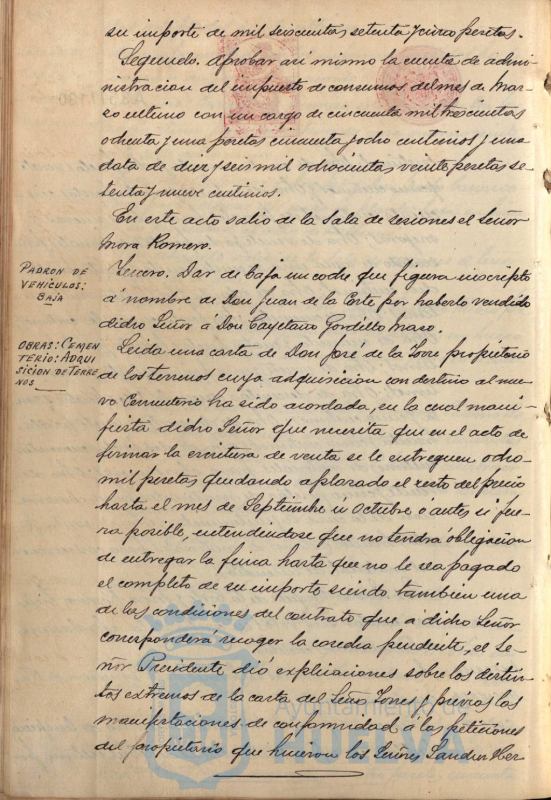 su importe de mil seiscientas setenta y cinco pesetas.
Segundo. Aprobar asi mismo la cuenta de admi-
nistracion del impuesto de consumos del mes de Mar-
zo ultimo con un cargo de cincuenta mil trescientas
ochenta y una pesetas cincuenta y ocho centimos y una
data de diez y seis mil ochocientas veinte pesetas se-
tenta y nueve centimos.
En este acto salio de la Sala de sesiones el Señor
Mora Romero.
PADRON DE
VEHICULOS:
BAJA
Tercero. Dar de baja un coche que figura inscripto
á nombre de Don Juan de la Corte por haberlo vendido
dicho Señor á Don Cayetano Gordillo Mazo.
OBRAS: CEMEN
TERIO: ADQUI
SICION DE TERRE
NOS
Leida una carta de Don José de la Torre propietario
de los terrenos cuya adquisicion con destino al nue-
vo Cementerio ha sido acordada, en la cual mani-
fiesta dicho Señor que necesita que en el acto de
firmar la escritura de venta se le entreguen ocho
mil pesetas quedando aplazado el resto del precio
hasta el mes de Septiembre ú Octubre ó antes si fue-
ra posible, entendiendose que no tendrá obligacion
de entregar la finca hasta que no le sea pagado
el completo de su importe siendo tambien una
de las condiciones del contrato que á dicho Señor
corresponderá recoger la cosecha pendiente, el Se-
ñor Presidente dió explicaciones sobre los distin-
tos extremos de la carta del Señor Torres y previas las
manifestaciones de conformidad á las peticiones
del propietario que hicieron los Señores Sanchez Her
Ayuntamiento de
HUELVA